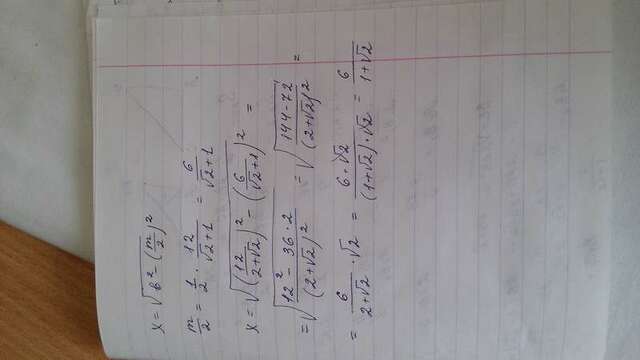 x = √(b² - (m/2)²)
m/2 = 1/2 · 12/(√2+1) = 6/(√2+1)
x = √((12/(2+√2))² - (6/(√2+1))²) =
= √((12² - 36·2)/(2+√2)²) = √((144-72)/(2+√2)²) =
= 6/(2+√2) · √2 = 6·√2/((1+√2)·√2) = 6/(1+√2)